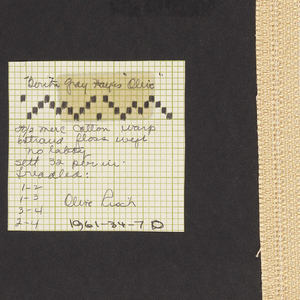 "Gray Hayes "Olive"
merc Cotton Warp
6 strand floss weft
no tabby
sett 32 per in.
Treadled:
1-2
1-3
3-4
2-4
Olive
1961-34-7 D